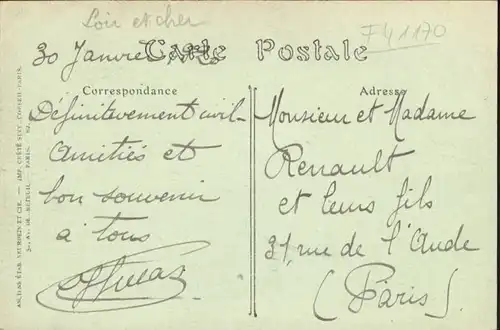 Loir et cher
F41170
30 Janvier
Carte Postale
Correspondance
Définitevement civil-
Amitiés et
bon souvenir
à tous
Adresse
Monsieur et Madame
Renault
et leurs fils
31, rue de l'Aude
(Paris)